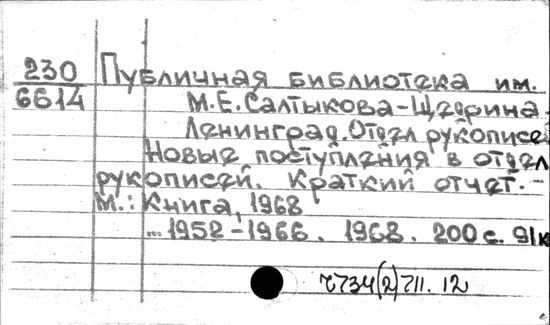 230 Публичная библиотека им.
6614 М.Е. Салтыкова-Щедрина.
Ленинград. Отдел рукописе
Новые поступления в отдел
рукописей. Краткий отчет.-
М.: Книга, 1968
... 1952-1966. 1968. 200 с. 91к
711. 12